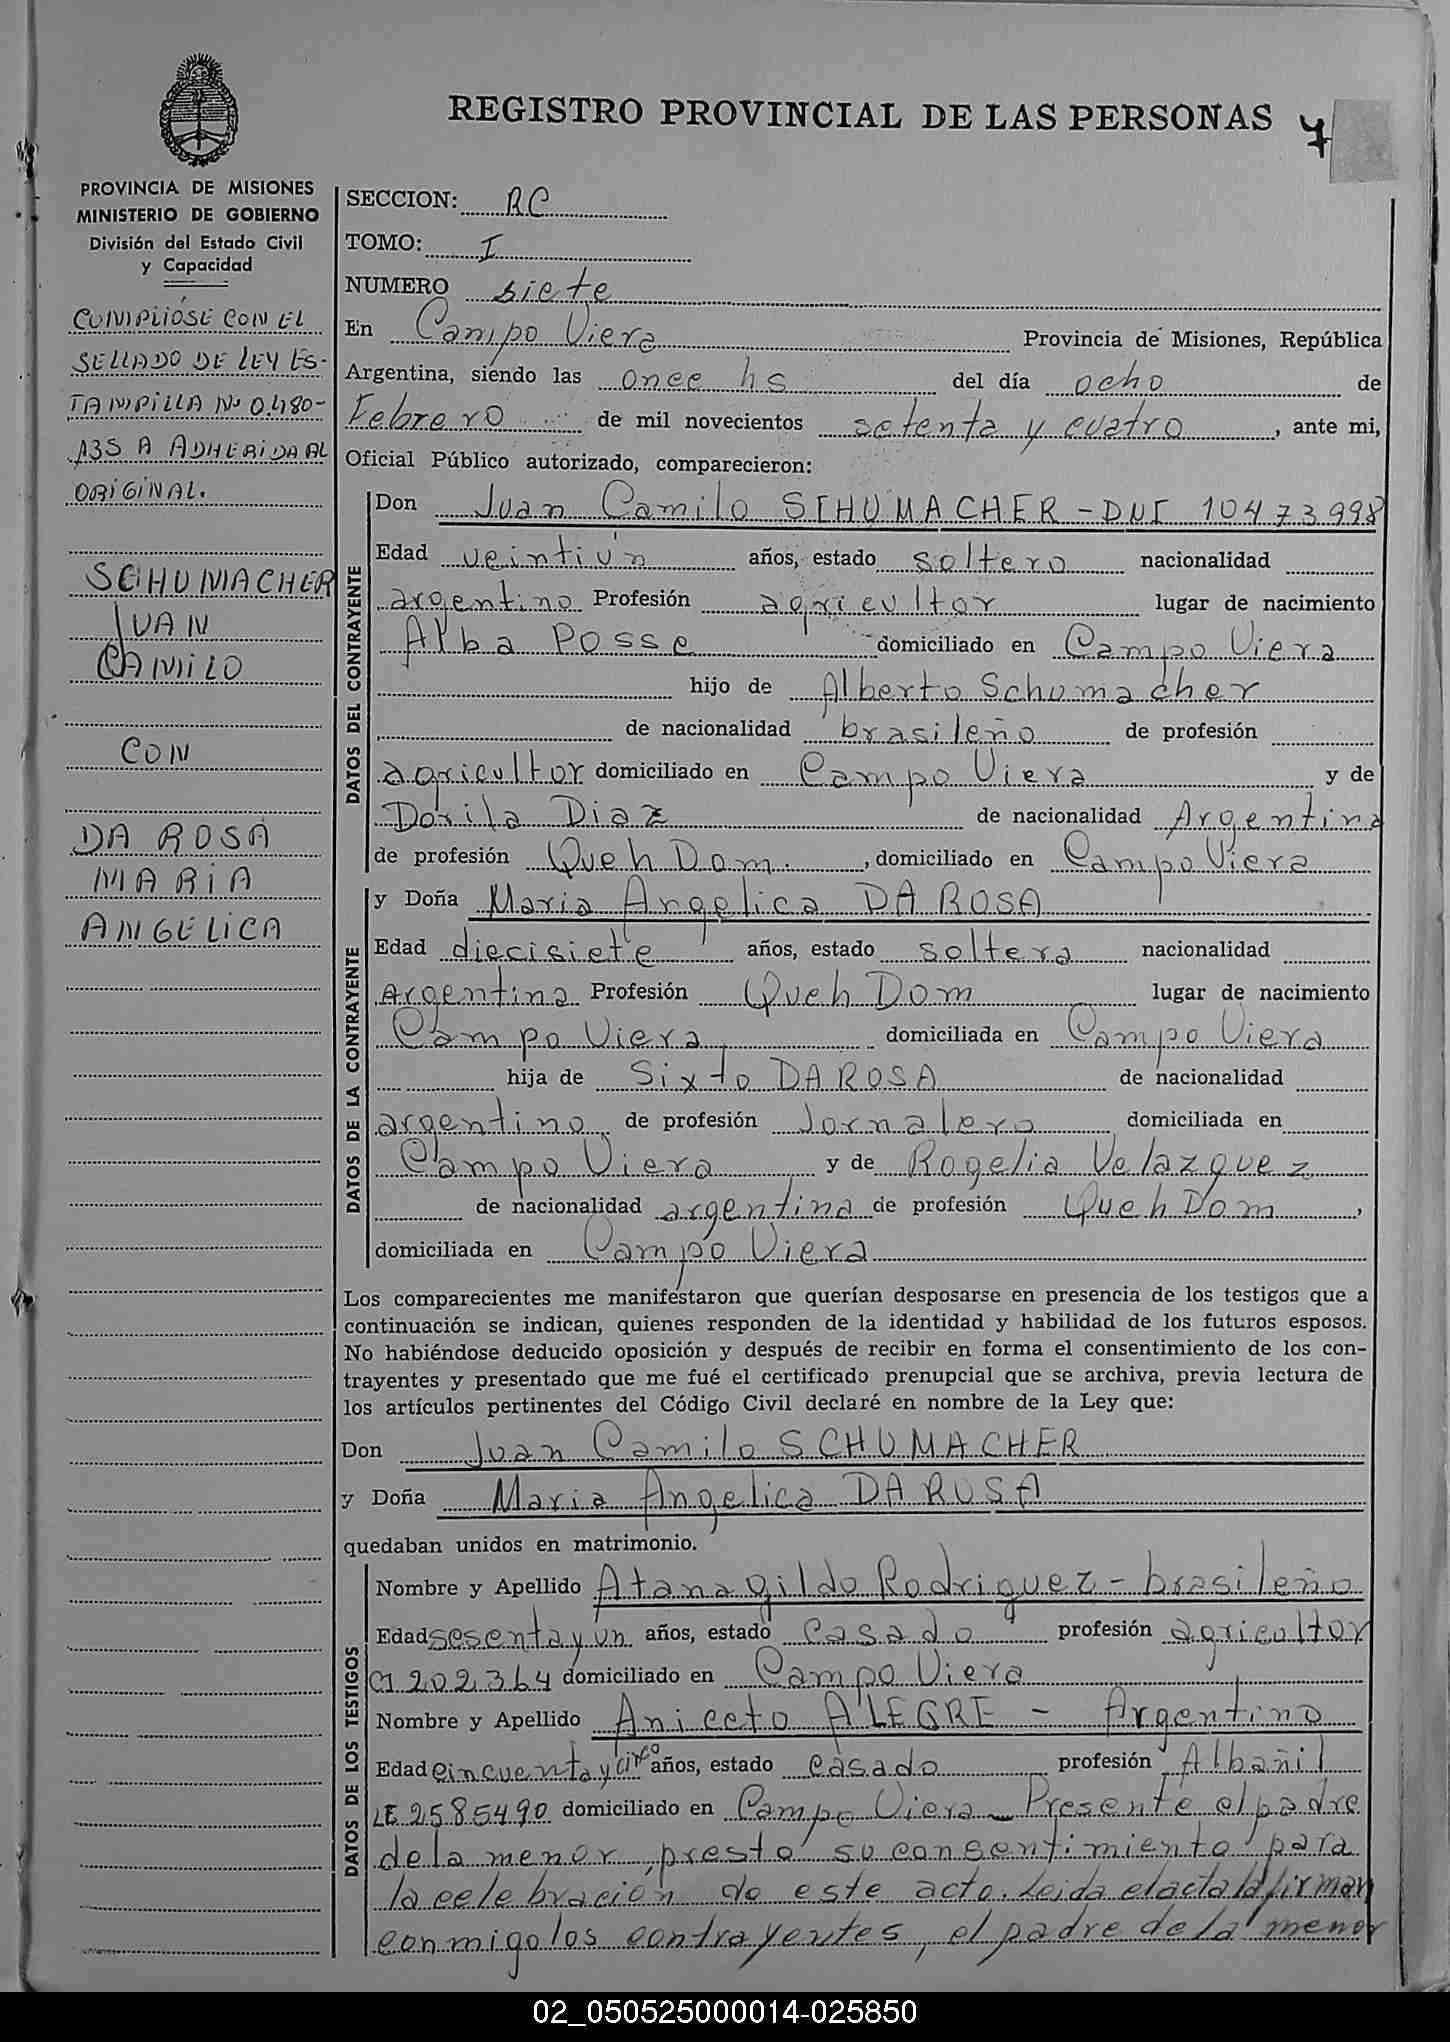 REGISTRO PROVINCIAL DE LAS PERSONAS 7
PROVINCIA DE MISIONES
MINISTERIO DE GOBIERNO
División del Estado Civil
y Capacidad
CUMPLIÓSE CON EL
SELLADO DE LEY ES-
TAMPILLA No 0.480-
A ADHERIDA AL
ORIGINAL.
SCHUMACHER
JUAN
CAMILO
CON
DA ROSA
MARIA
ANGELICA
SECCION: RC
TOMO: I
NUMERO siete
En Campo Viera Provincia de Misiones, República
Argentina, siendo las once hs del día ocho de
Febrero de mil novecientos setenta y cuatro, ante mi,
Oficial Público autorizado, comparecieron:
DATOS DEL CONTRAYENTE
Don Juan Camilo SCHUMACHER - DNI 10473998
Edad veintiún años, estado soltero nacionalidad
argentino Profesión agricultor lugar de nacimiento
Alba Posse domiciliado en Campo Viera
hijo de Alberto Schumacher
de nacionalidad brasileño de profesión
agricultor domiciliado en Campo Viera y de
Dorila Diaz de nacionalidad Argentina
de profesión Queh Dom., domiciliado en Campo Viera
DATOS DE LA CONTRAYENTE
y Doña Maria Angelica DA ROSA
Edad diecisiete años, estado soltera nacionalidad
Argentina Profesión Queh Dom lugar de nacimiento
Campo Viera domiciliada en Campo Viera
hija de Sixto DA ROSA de nacionalidad
argentino de profesión Jornalero domiciliada en
Campo Viera y de Rogelia Velazquez
de nacionalidad argentina de profesión Queh Dom,
domiciliada en Campo Viera
Los comparecientes me manifestaron que querían desposarse en presencia de los testigos que a
continuación se indican, quienes responden de la identidad y habilidad de los futuros esposos.
No habiéndose deducido oposición y después de recibir en forma el consentimiento de los con-
trayentes y presentado que me fué el certificado prenupcial que se archiva, previa lectura de
los artículos pertinentes del Código Civil declaré en nombre de la Ley que:
Don Juan Camilo SCHUMACHER
y Doña Maria Angelica DA ROSA
quedaban unidos en matrimonio.
DATOS DE LOS TESTIGOS
Nombre y Apellido Atanagildo Rodriguez - brasileño
Edad sesenta y un años, estado casado profesión agricultor
CI 202.364 domiciliado en Campo Viera
Nombre y Apellido Aniceto ALEGRE - Argentino
Edad cincuenta y cinco años, estado casado profesión Albañil
LE 2585490 domiciliado en Campo Viera - Presente el padre
de la menor, prestó su consentimiento para
la celebración de este acto. Leida el acta la firman
conmigo los contrayentes, el padre de la menor
02_050525000014-025850